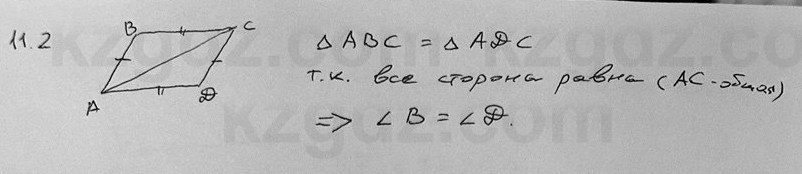 11.2
B C
A D
△ ABC = △ ADC
т.к. все сторона равна (AC-общая)
=> ∠ B = ∠ D.
kzgdz.com kzgdz.com
kzgdz.com